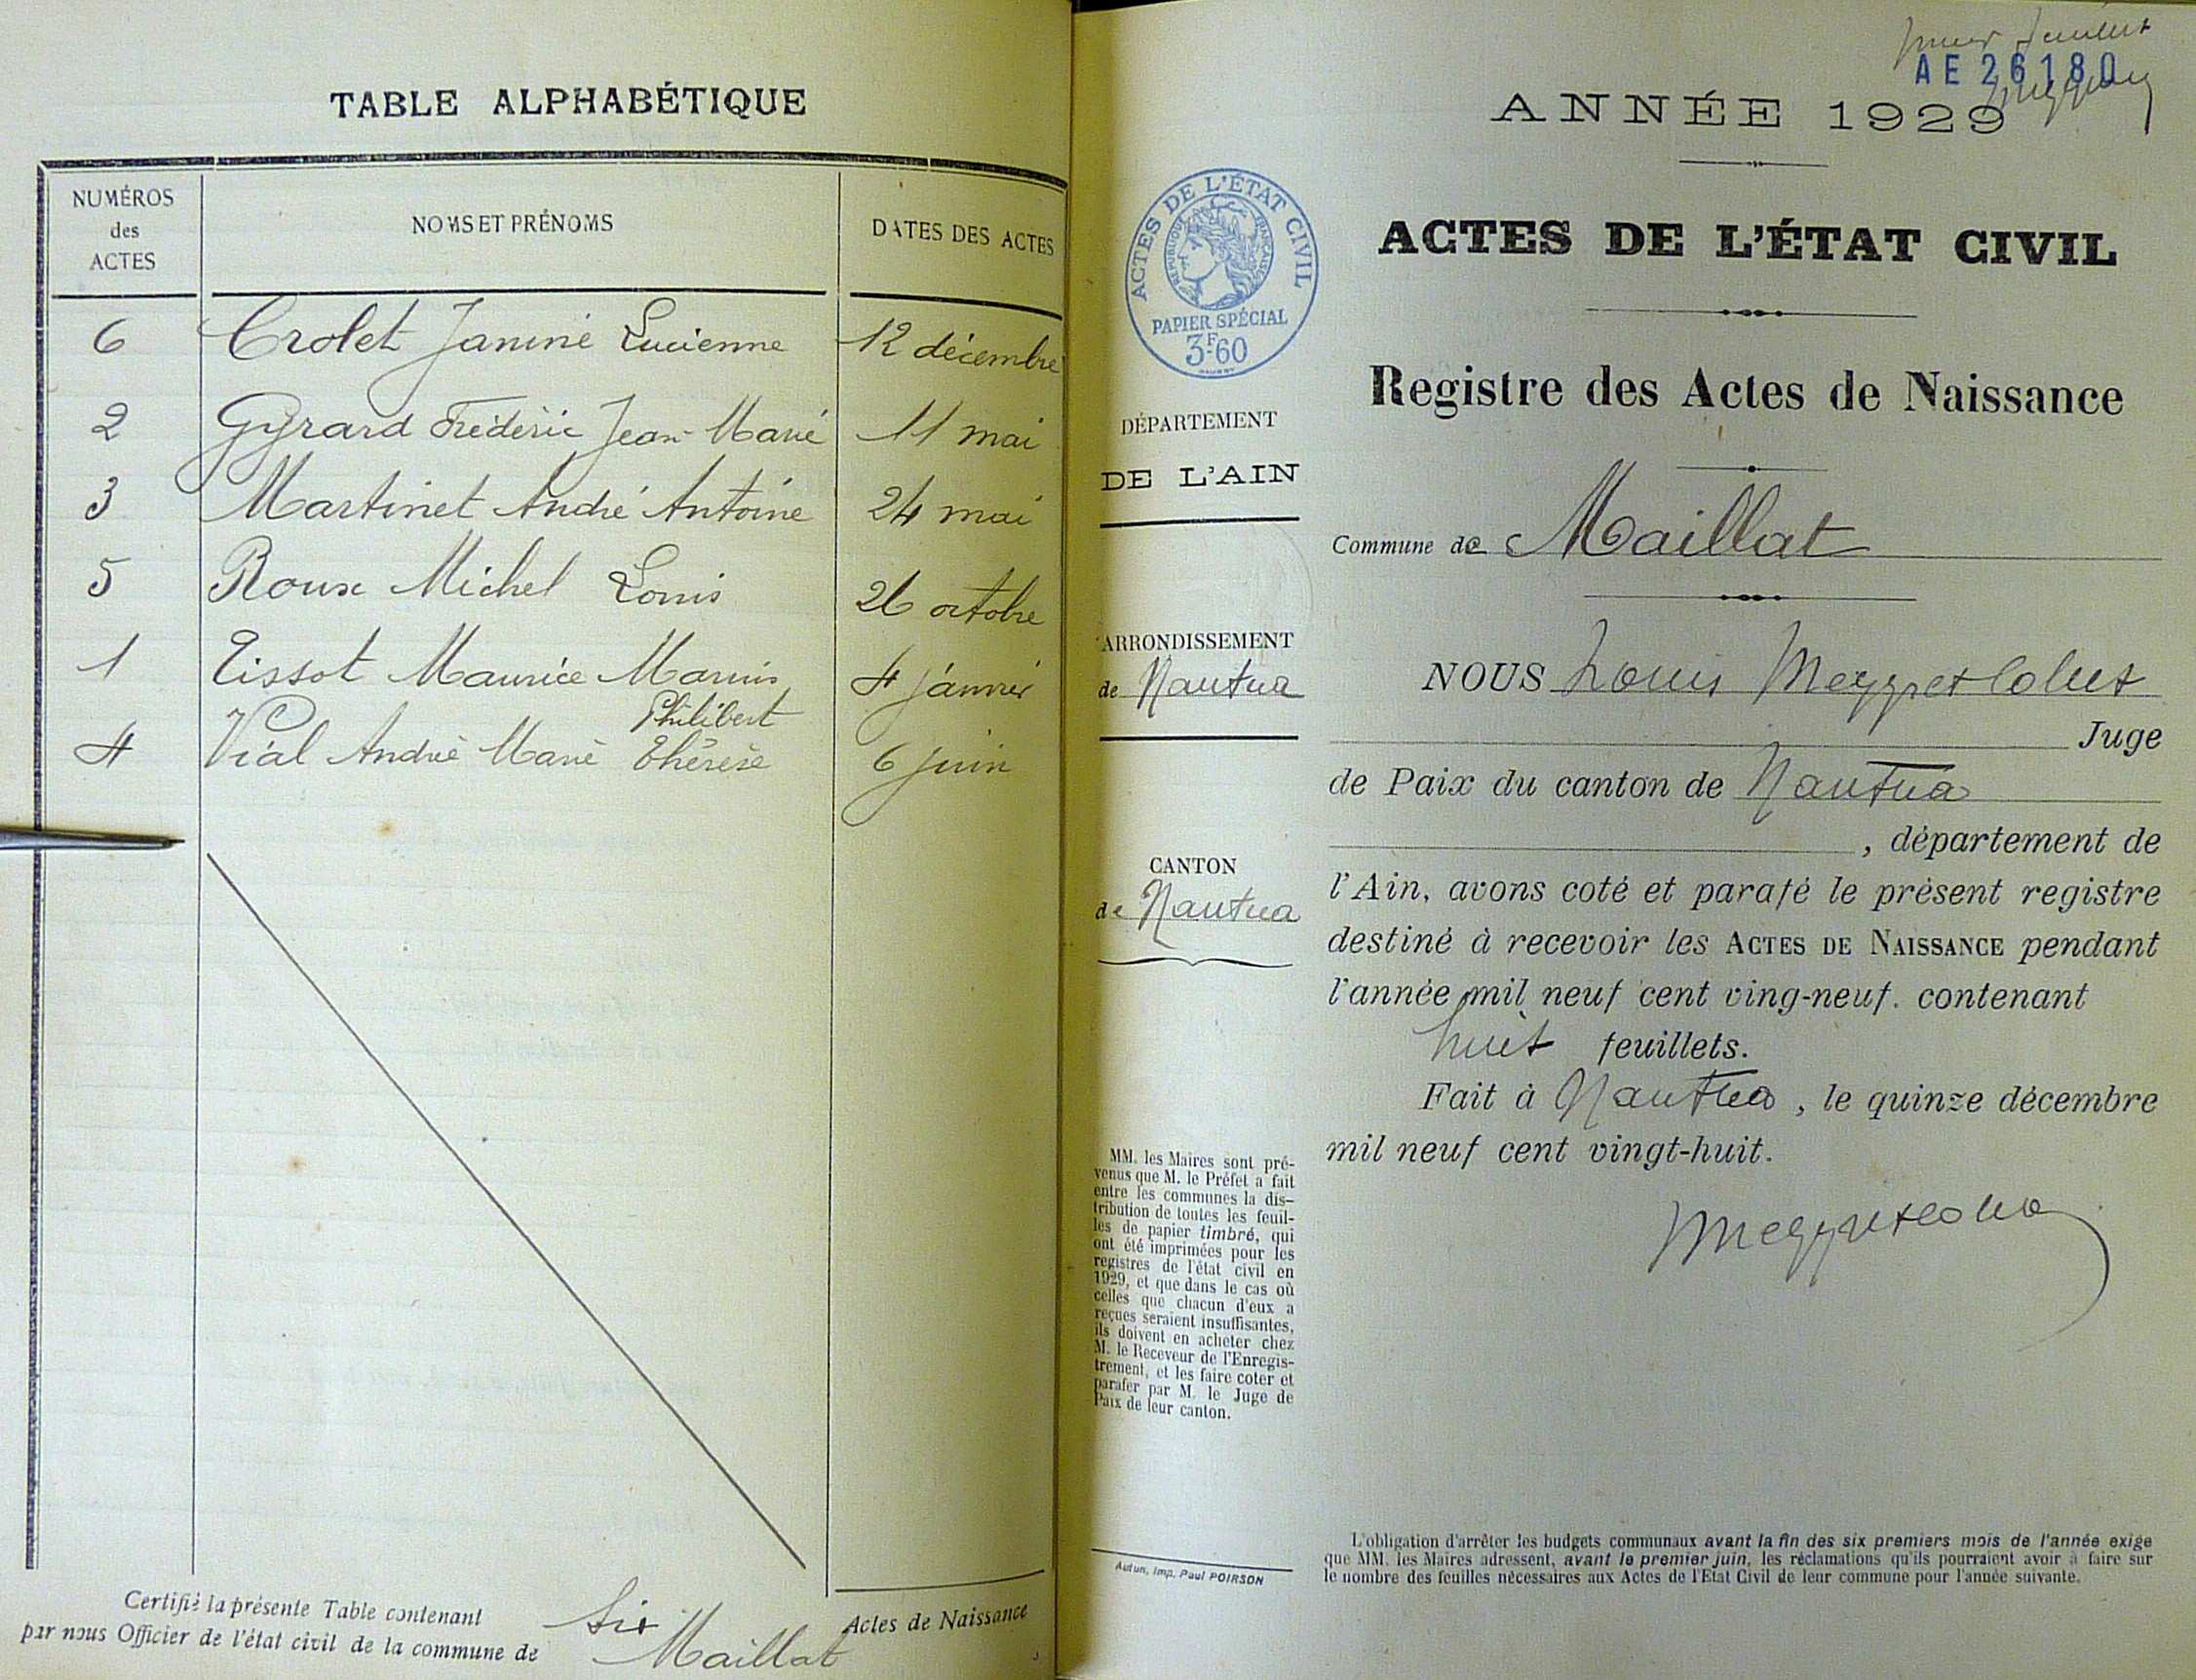 TABLE ALPHABÉTIQUE
NUMÉROS
des
ACTES
NOMS ET PRÉNOMS
DATES DES ACTES
6 Crolet Janine Lucienne 12 décembre
2 Gyrard Frédéric Jean-Marie 11 mai
3 Martinet André Antoine 24 mai
5 Roux Michel Louis 26 octobre
1 Tissot Maurice Marius 4 janvier
Philibert
4 Vial André Marie Thérèse 6 juin
Certifié la présente Table contenant six Actes de Naissance
par nous Officier de l'état civil de la commune de Maillat
AE 26180
ANNÉE 1929
ACTES DE L'ÉTAT CIVIL
RÉPUBLIQUE FRANÇAISE
PAPIER SPÉCIAL
3F.60
ACTES DE L'ÉTAT CIVIL
Registre des Actes de Naissance
DÉPARTEMENT
DE L'AIN
Commune de Maillat
ARRONDISSEMENT
de Nantua
CANTON
de Nantua
NOUS Louis Meyget Colut
Juge
de Paix du canton de Nantua
, département de
l'Ain, avons coté et parafé le présent registre
destiné à recevoir les ACTES DE NAISSANCE pendant
l'année mil neuf cent ving-neuf. contenant
huit feuillets.
Fait à Nantua, le quinze décembre
mil neuf cent vingt-huit.
MM. les Maires sont pré-
venus que M. le Préfet a fait
entre les communes la dis-
tribution de toutes les feuil-
les de papier timbré, qui
ont été imprimées pour les
registres de l'état civil en
1929, et que dans le cas où
celles que chacun d'eux a
reçues seraient insuffisantes,
ils doivent en acheter chez
M. le Receveur de l'Enregis-
trement, et les faire coter et
parafer par M. le Juge de
Paix de leur canton.
Autun, Imp. Paul POIRSON
L'obligation d'arrêter les budgets communaux avant la fin des six premiers mois de l'année exige
que MM. les Maires adressent, avant le premier juin, les réclamations qu'ils pourraient avoir à faire sur
le nombre des feuilles nécessaires aux Actes de l'Etat Civil de leur commune pour l'année suivante.